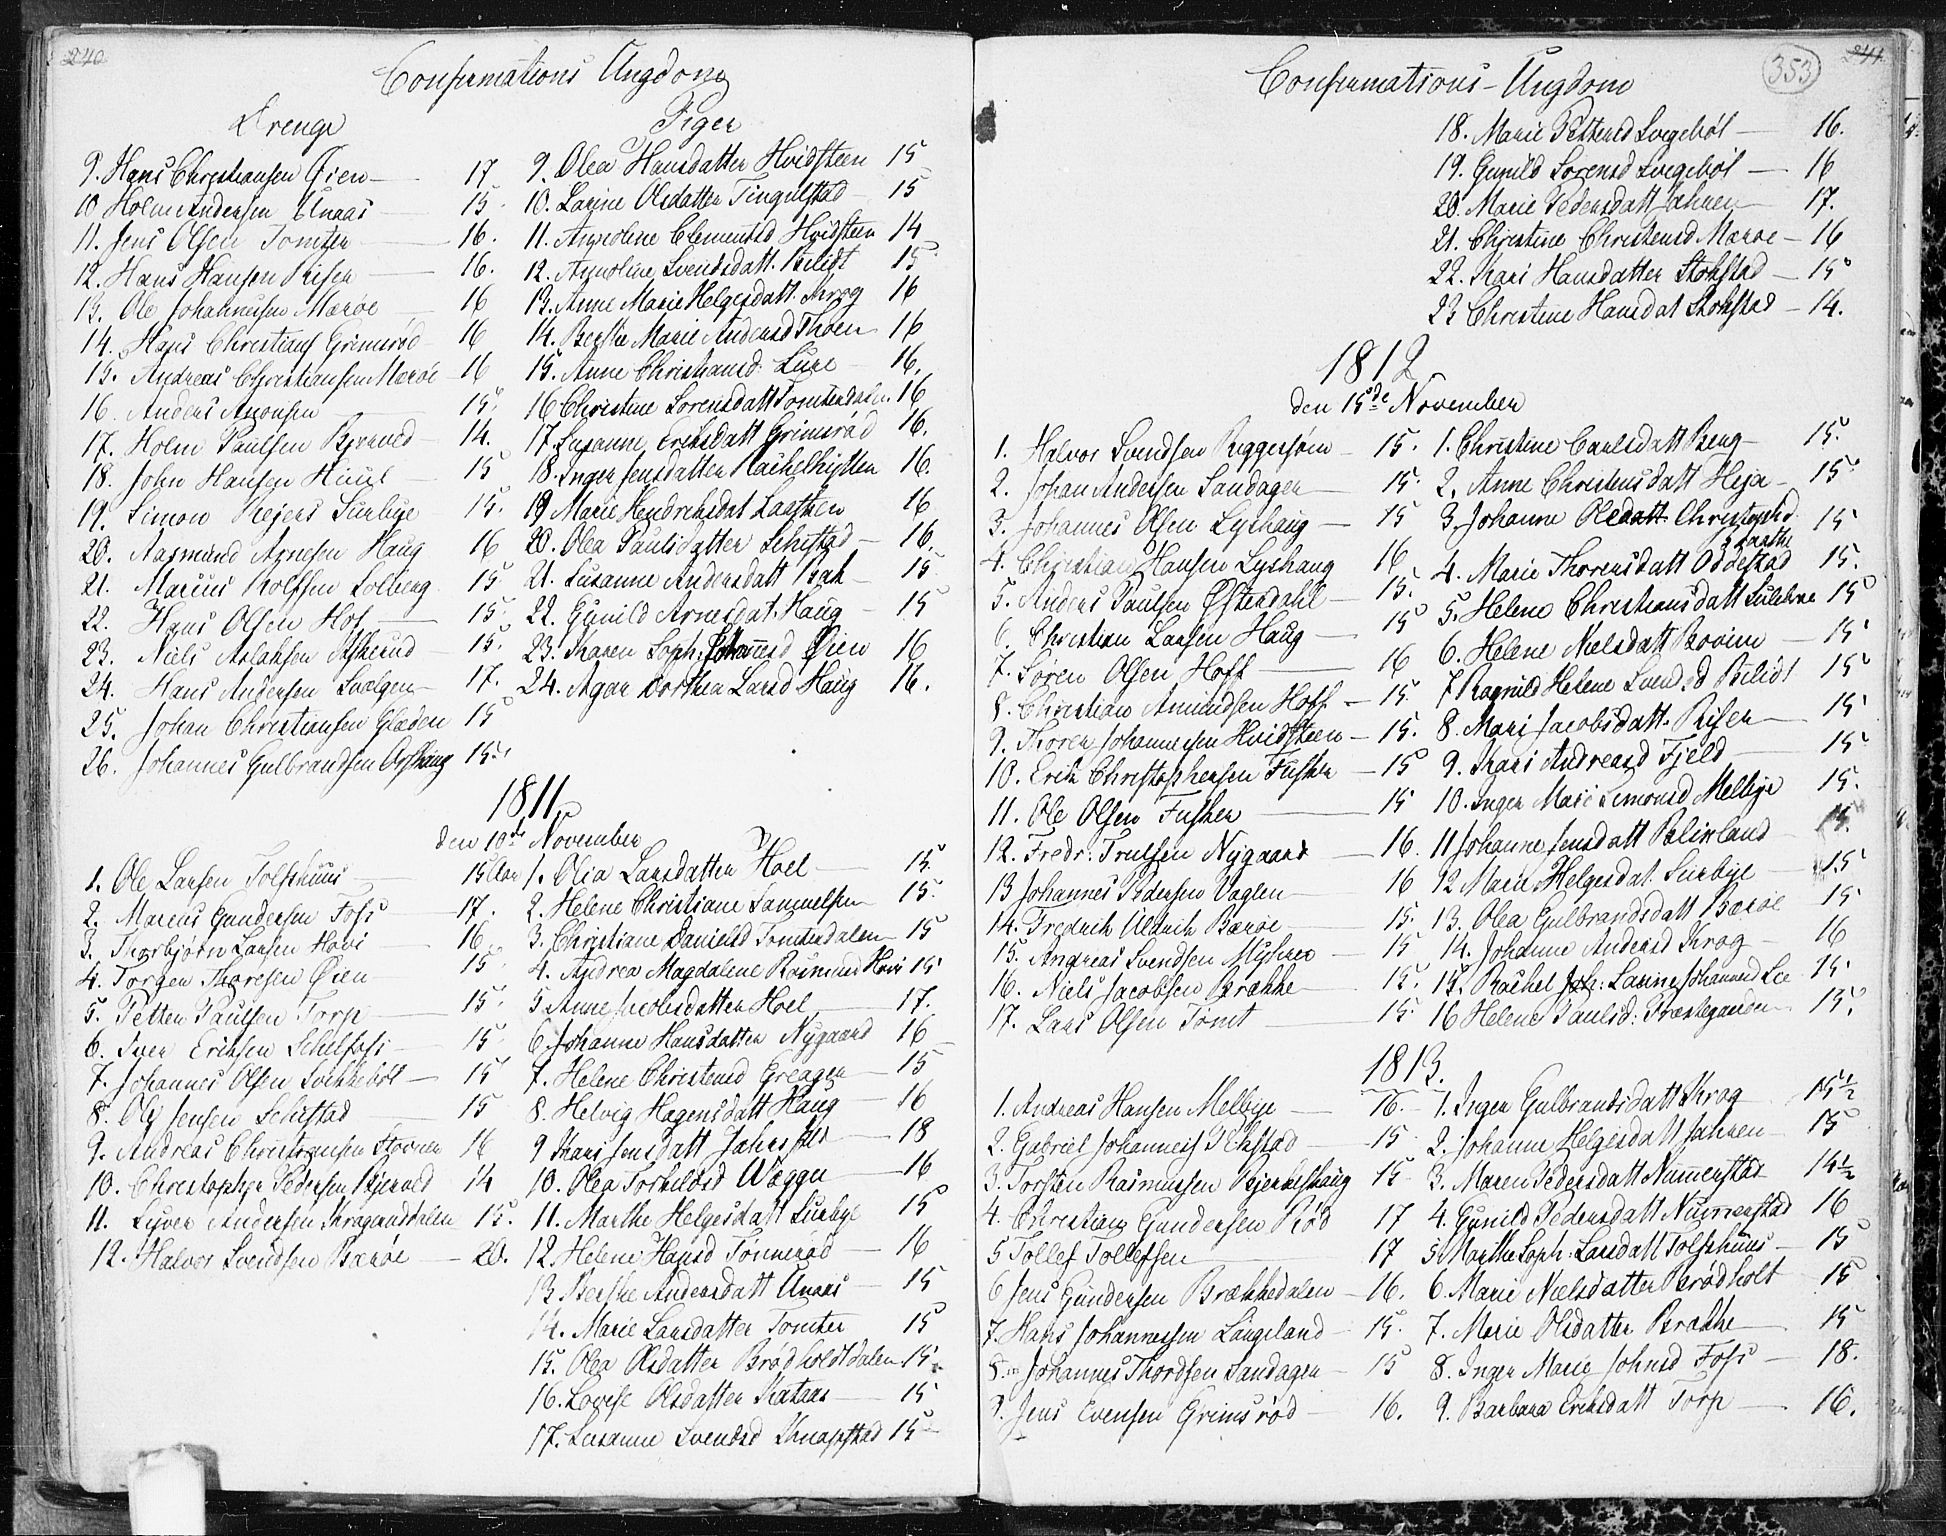 240
Confirmations Ungdom
Drenge
9. Hans Christiansen Øien 17
10 Holm Andersen Unaas 15
11. Jens Olsen Tomter 16.
12. Hans Hansen Riser 16.
13. Ole Johannesen Morøe 16
14. Hans Christians Grimsrød 16
15. Andreas Christiansen Morøe 16
16. Anders 15.
17. Holm Paulsen 14.
18. John Hansen Huuse 15
19. Simon Rejers Suubye 15.
20. Aasmund Arnesen Haug 16
21. Marcus Rolfsen Solberg 15
22. Hans Olsen Hof 15.
23. Niels Aslaksen Askerud 15.
24. Hans Andersen Svalgen 17.
25. Johan Christiansen Gladen 15
26. Johannes Gulbrandsen 15.
Piger
9. Olea Hansdatter Hvidsteen 15
10. Larine Olsdatter Tingulstad 15
11. Annoline Clementsd Hvidsteen 14
12. Annoline Svendsdatt. Bilidt 15
13. Anne Marie Helgesdatt. Krog 16
14. Berthe Marie Andersd Thoen 16
15. Anne Christiansd: Lure 16.
16 Christine Sorensdatt Tomterdalen. 16
17. Susanne Eriksdatt Grimsrød 16.
18. Inger Jensdatter Rachelhytten 16.
19 Marie Hendrichsdat Laethen 16
20. Olea Paulsdatter Schistad 16.
21. Susanne Andersdatt Bak 15
22. Gunild Arnesdat. Haug 15
23. Karen Soph. Øien 16
24. Agar Dorthea Larsd Haug 16.
1811.
den 10de November
1. Ole Larsen Tolfshuus 15 Aar
2. Marcus Gundersen Foss 17.
3. Thorbjørn Larsen Hovi 16
4. Torger Thoresen Øien 15
5. Petter Paulsen Torp 15.
6. Iver Eriksen Schelfoss 15
7. Johannes Olsen Svikkebøl 15
8. Ole Jensen Schistad 15
9. Andreas Christiansen 16
10. Christopher Pedersen Bjerald 14
11. Syver Andersen Kragerudalen 15.
12. Halvor Svendsen Barøe 20.
1. Olia Larsdatter Hoel 15
2. Helene Christiane Samuelsen 15.
3. Christiane Danielsd Tomterdalen 15
4. Andrea Magdalene Rasmusd Hovi 15
5 Anne Jacobsdatter Hoel 17.
6. Johanne Hansdatter Nygaard 16
7. Helene Christensd Greager 15
8. Helvig Hagensdatt Haug 16
9 Kari Jensdatt Jahrsfeld 18
10. Olea Torkildsd Wæggu 16
11. Marthe Helgesdatt Suubye 15
12. Helene Hansd Tønnerød 16
13 Berthe Andersdatt Unaas 15
14. Marie Larsdatter Tomter 15
15. Olea Olsdatter Brødholdtdalen 15.
16. Lovise Olsdatter Kataas 15
17. Susanne Svendsd Knapstad 15
353
241
Confirmations-Ungdom
18. Marie Pettersd Svegebøl 16.
19. Gunild Sorensd Svegebøl 16
20. Marie Pedersdatt Jahren 17.
21. Christine Christensd Morøe 16
22. Kari Hansdatter Stokstad 15
23 Christine Hansdat Stokstad 14.
1812
den 15de November
1. Halvor Svendsen Riggesjøen 15.
2. Johan Andersen Sandager 15.
3. Johannes Olsen Lyshaug 15
4. Christian Hansen Lyshaug 16
5. Anders Paulsen Østerdahl 15.
6. Christian Larsen Haug 15
7. Søren Olsen Hoff 16
8. Christian Amundsen Hoff 15.
9. Thoren Johannesen Hvidsteen 15.
10. Erik Christophersen Fusker 15
11. Ole Olsen Fusker 15
12. Fredr: Trulsen Nygaard 16.
13 Johannes Pedersen Vaglen 16
14. Fredrich Oldrich Barøe 15.
15. Andreas Svendsen Myhrer 15
16. Niels Jacobsen Brække 15.
17. Lars Olsen Tomt 15
1. Christine Carlsdatt Berg 15.
2. Anne Christensdatt Heja 15
3. Johanne Christophd 15
4. Marie Thoresdatt Oddestad 15.
5. Helene Christiansdatt 15
6. Helene Nielsdatt Bovim 15
7 Ragnild Helene Svendsd Bilidt 15
8. Mari Jacobsdatt. Riser 15
9. Kari Andreasd Fjeld 15
10. Inger Marie Simonsd Melbye 15.
11 Johanne Jensdatt 15.
12 Marie Helgesdat. Suubye 15
13. Olea Gulbrandsdatt Barøe 15
14. Johanne Andersd Krog 16
15. Rachel Joh: Larine Johannesd Lee 15
16 Helene Paulsd: Præstegaarden 15.
1813.
1. Andreas Hansen Melbye 16.
2. Gabriel Johanness Ekstad 15
3. Torsten Rasmussen Bjerkelshaug 15
4. Christian Gundersen Rød 17
5 Tollef Tollefsen 17
6 Jens Gundersen Brækkedalen 16.
7. Hans Johannessen Langeland 15.
8. Johannes Thordsen Sandager 15
9. Jens Evensen Grimsrød 16.
1. Inger Gulbrandsdatt Krog 15½
2. Johanne Helgesdatt Jahren 15
3. Maren Pedersdatt Numerstad 14½
4. Gunild Pedersdatt Numerstad 16
5 Marthe Soph: Larsdatt Tolfshuus 15
6. Marie Nielsdatter Brødholt 15
7. Marie Olsdatter Brække 15
8. Inger Marie Johnsd Foss 18.
9. Barbara Eriksdatt Torp 16.